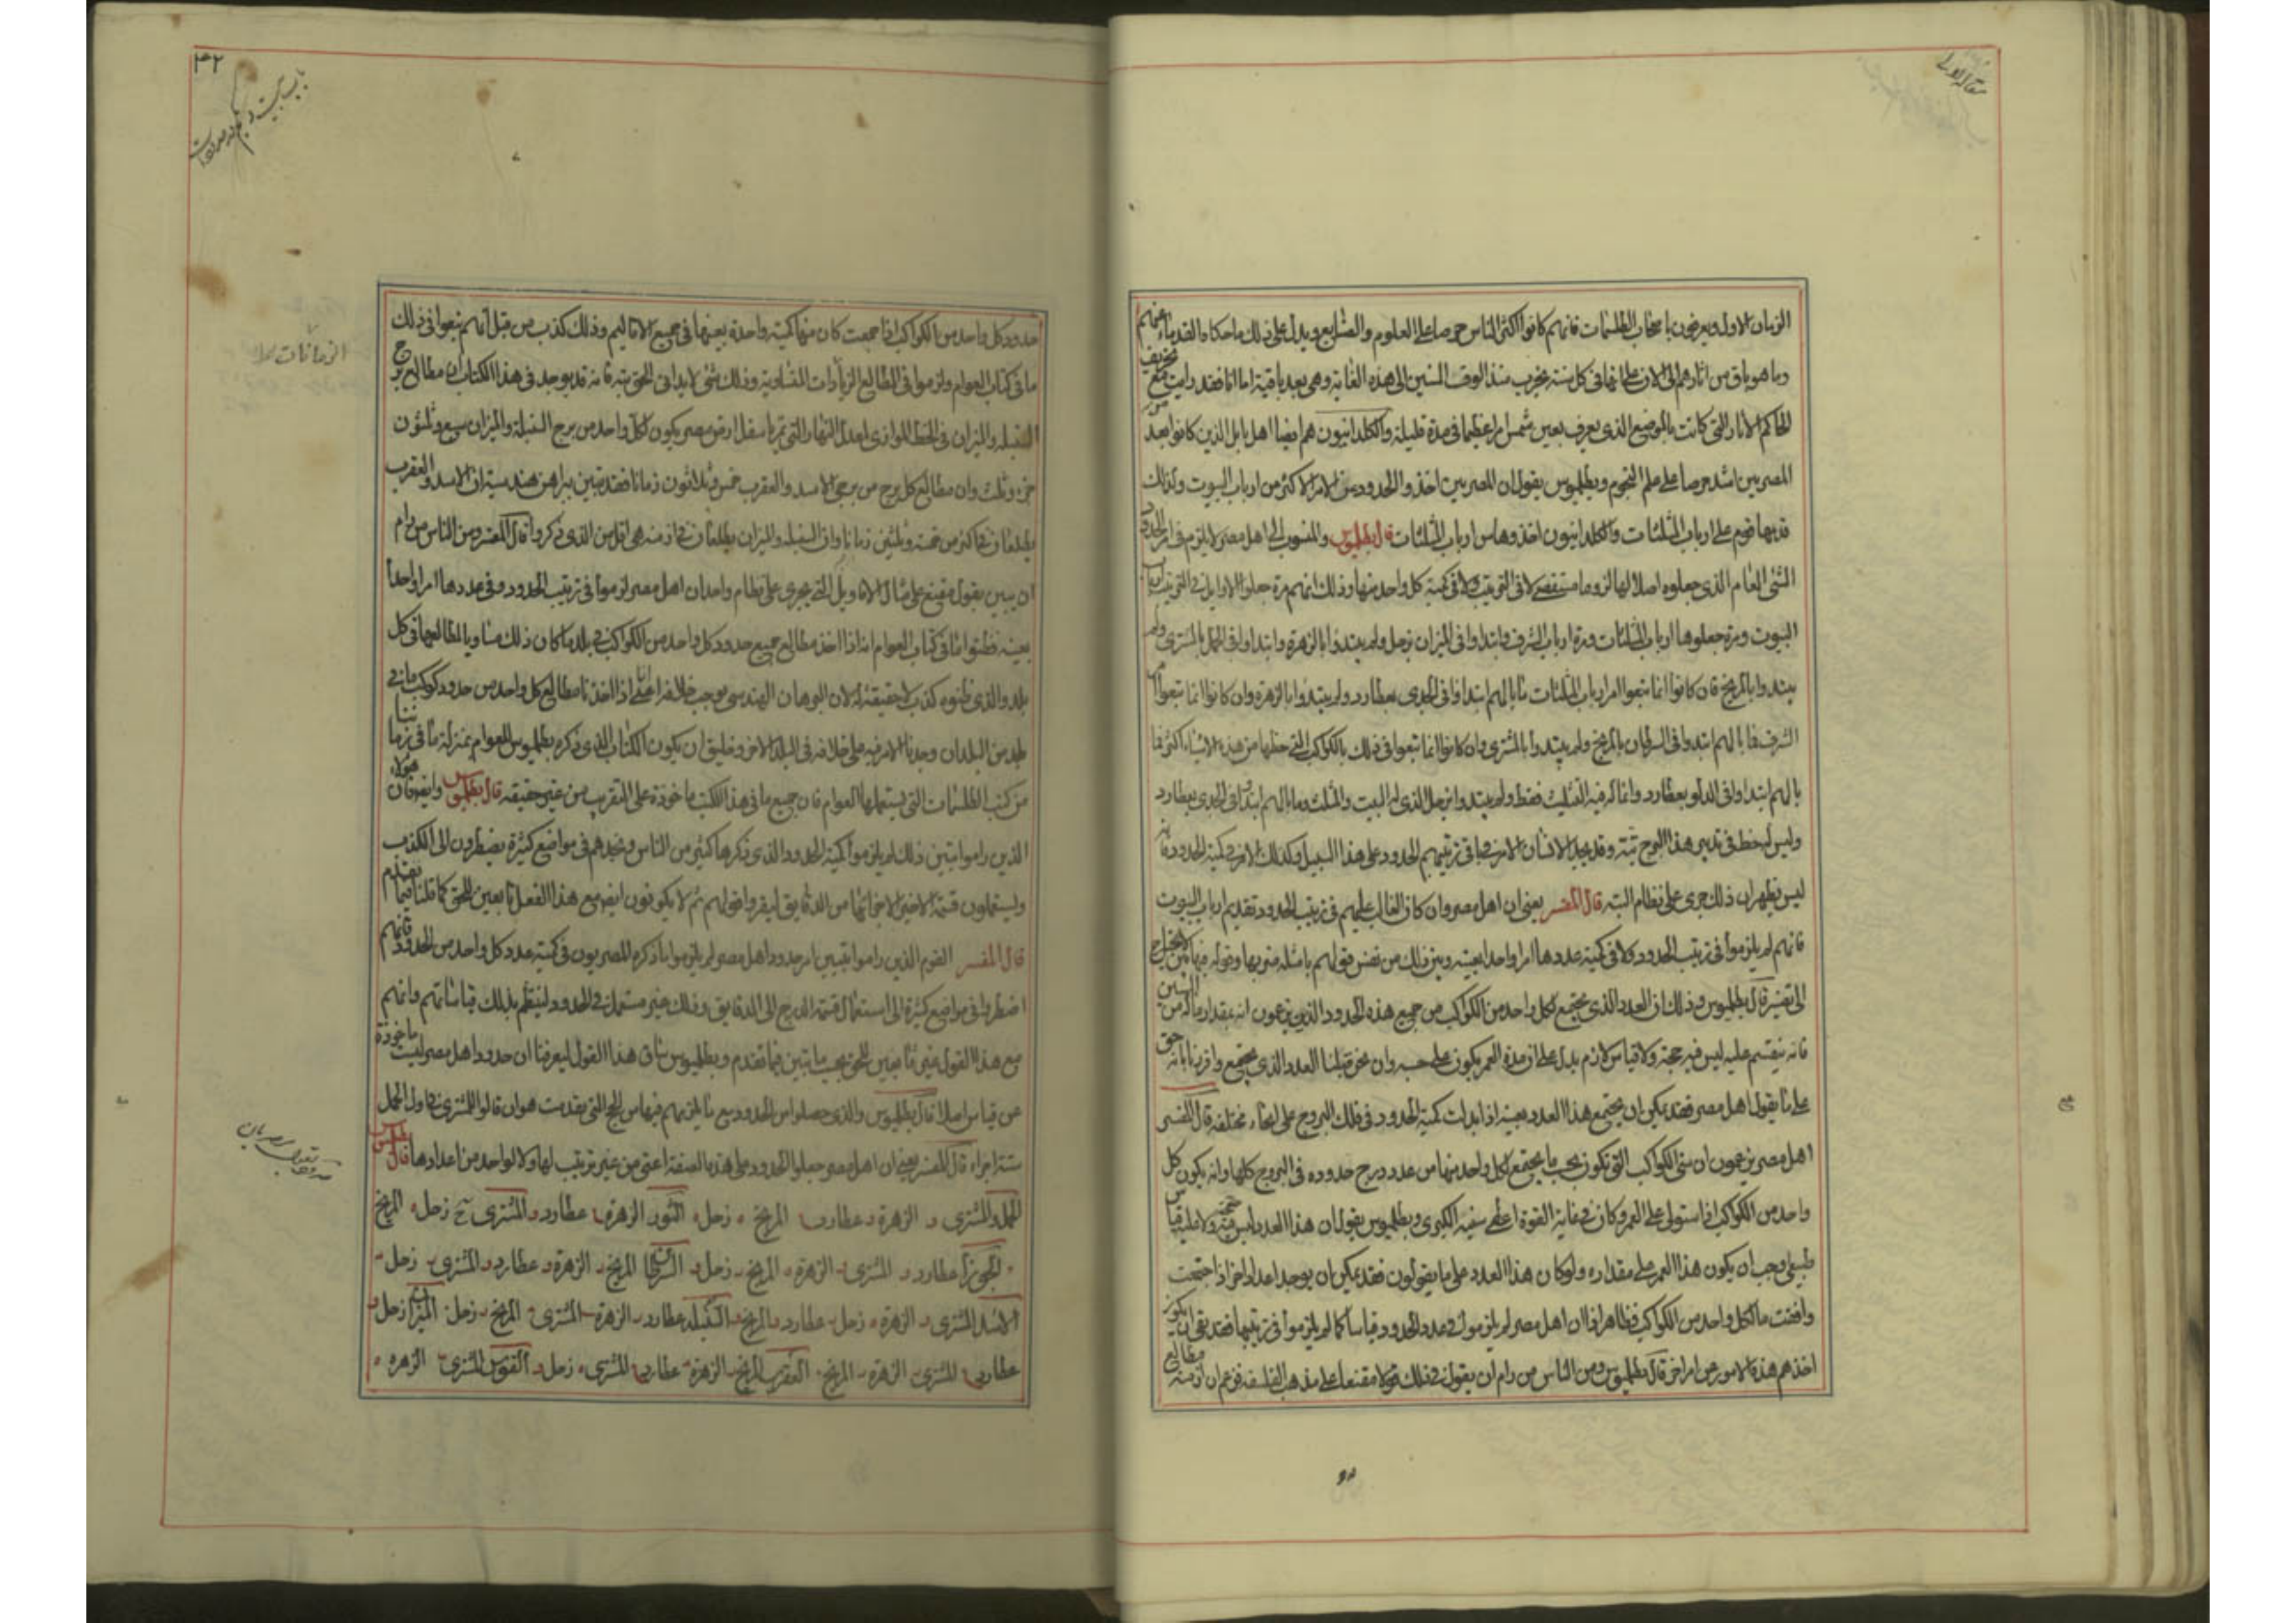 مقالة الاولى
الزمان الاول ويعرفون باصحاب الطلسمات فانهم كانوا اكثر الناس حرصا على العلوم والصنايع ويدل على ذلك ما حكاه القدماء عنهم
وما هو باق من اثارهم الى الان على انها فى كل سنة يخرب منذ الوقت السنين الى هذه الغاية وهى بعد باقية اما انا فقد رايت
الحاكم الاثار التى كانت بالموضع الذى يعرف بعين شمس امرا عظيما فى مدة قليلة والكلدانيون هم ايضا اهل بابل الذين كانوا بعد
المصريين اشد حرصا على علم النجوم وبطلميوس يقول ان المصريين اخذوا الحدود من الامر الاكثر من ارباب البيوت ولذلك
قد بها قوم على ارباب المثلثات والكلدانيون اخذوها من ارباب المثلثات قال بطلميوس والمنسوب الى اهل مصر لا يلزم فى امر الحدود
الشئ العام الذى جعلوه اصلا لها لزوما مستقصى لا فى الترتيب ولا فى كمية كل واحد منها وذلك انهم مرة جعلوا الاوايل فى الترتيب ارباب
البيوت ومرة جعلوها ارباب المثلثات ومرة ارباب الشرف وابتداوا فى الميزان بزحل ولم يبتدؤا بالزهرة وابتداوا فى الحمل بالمشترى ولم
يبتدوا بالمريخ فان كانوا انما تبعوا امر ارباب المثلثات فما بالهم ابتداوا فى الجدى بعطارد ولم يبتدؤا بالزهرة وان كانوا انما تبعوا امر
الشرف فما بالهم ابتدوا فى السرطان بالمريخ ولم يبتدوا بالمشترى وان كانوا انما تبعوا فى ذلك بالكواكب التى حظها من هذه الاشياء اكثر فما
بالهم ابتداوا فى الدلو بعطارد وانما له فيه التثليث فقط ولم يبتدوا بزحل الذى له البيت والمثلث وما بالهم ابتداوا فى الجدى بعطارد
وليس له حظ فى تدبير هذا البرج بتة وقد يجد الانسان الامر فيما بقى ترتيبهم الحدود على هذا السبيل وكذلك الامر فى كمية الحدود فانه
ليس يظهر ان ذلك جرى على نظام البتة قال المفسر يعنى ان اهل مصر وان كان الغالب عليهم فى ترتيب الحدود تقديم ارباب البيوت
فانهم لم يلزموا فى ترتيب الحدود ولا فى كمية عددها امرا واحدا بعينه وبين ذلك من نقض قولهم بامثلة ضربها وقوله فيها لا يحتاج
الى تفسير قال بطلميوس وذلك ان العدد الذى يجتمع لكل واحد من الكواكب من جميع هذه الحدود الذين يزعمون انه بمقدار ماله من السنين
فانه ينقسم عليه ليس فيه حجة ولا قياس لازم يدل على ان مدة العمر يكون على حسبه وان نحن قبلنا العدد الذى يجتمع واقررنا بانه حق
على ما يقول اهل مصر فقد يمكن ان يجتمع هذا العدد بعينه اذا بدلت كمية الحدود فى فلك البروج على انحاء مختلفة قال المفسر
اهل مصر يزعمون ان سنى الكواكب التى تكون بحسب ما يجتمع لكل واحد منها من عدد درج حدوده فى البروج كلها وانه يكون كل
واحد من الكواكب اذا استولى على العمر وكان فى غاية القوة اعطى سنيه الكبرى وبطلميوس يقول ان هذا العدد ليس فيه حجة ولا عليه قياس
طبيعى وجب ان يكون هذا العمر على مقداره ولو كان هذا العدد على ما يقولون فقد يمكن ان يوجد اعداد اخر اذا اجتمعت
وافقت ما لكل واحد من الكواكب فظاهر اذا ان اهل مصر لم يلزموا فى عدد الحدود قياسا كما لم يلزموا فى ترتيبها فقد بقى ان يكون
اخذهم هذه الامور من امر اخر قال بطلميوس ومن الناس من رام ان يقول فى ذلك قولا مقنعا على مذهب الفلسفة فزعم ان ازمنة مطالع
٣٢
حدود كل واحد من الكواكب اذا جمعت كان منها كمية واحدة بعينها فى جميع الاقاليم وذلك كذب من قبل انهم تبعوا فى ذلك
ما فى كتاب العوام ولزموا فى المطالع الزيادات المتساوية وذلك شئ لا يدانى الحق بتة فانه قد يوجد فى هذا الكتاب ان مطالع برج
السنبلة والميزان فى الخط الموازى لمعدل النهار التى تمر باسفل ارض مصر يكون لكل واحد من برج السنبلة والميزان سبع وثلثون
جزء وثلث وان مطالع كل برج من برجى الاسد والعقرب خمس وثلاثون زمانا فقد تبين ببراهين هندسية ان الاسد والعقرب
يطلعان فى اكثر من خمسة وثلثين زمانا وان السنبلة والميزان يطلعان فى ازمنة هى اقل من الذى ذكروا قال المفسر ومن الناس من رام
ان يبين بقول مقنع على مثال الاقاويل التى يجرى على نظام واحد ان اهل مصر لزموا فى ترتيب الحدود وفى عددها امرا واحدا
بعينه فظنوا انما فى كتاب العوام انه اذا اخذ مطالع جميع حدود كل واحد من الكواكب فى بلد ما كان ذلك مساويا لمطالعها فى كل
بلد والذى ظنوه كذب لا حقيقة له لان البرهان الهندسى يوجب خلافه اعنى انا اذا اخذنا مطالع كل واحد من حدود كوكب ما فى
بلد من البلدان وجدنا الامر فيه على خلافه فى البلد الاخر وخليق ان يكون الكتاب الذى ذكره بطلميوس للعوام بمنزلة ما فى زماننا
من كتب الطلسمات التى يستعملها العوام فان جميع ما فى هذا الكتب ماخوذة على التقريب من غير حقيقة قال بطلميوس وايضا فان هولاء
الذين راموا تبيين ذلك لم يلزموا كمية الحدود الذى ذكرها كثير من الناس ونجدهم فى مواضع كثيرة يضطرون الى الكذب
ويستعملون قسمة الاجزاء لاجزائها من الدقايق ليقروا قولهم ثم لا يكونون ايضا مع هذا الفعل تابعين للحق كما قلنا فيما تقدم
قال المفسر القوم الذين راموا تبيين امر حدود اهل مصر لم يلزموا ما ذكره المصريون فى كمية عدد كل واحد من الحدود فانهم
اضطروا فى مواضع كثيرة الى استعمال قسمة الدرج الى الدقايق وذلك غير مستعمل فى الحدود لينتظم بذلك قياساتهم وانهم
مع هذا القول غير تابعين للحق بحسب ما تبين فيما تقدم وبطلميوس ساق هذا القول ليعرفنا ان حدود اهل مصر ليست ماخوذة
عن قياس اصلا قال بطلميوس والذى حصلوا من الحدود مع ما يلزمهم فيها من الحجج التى تقدمت هو ان قالوا للمشترى فى اول الحمل
ستة اجزاء قال المفسر يعنى ان اهل مصر جعلوا الحدود على هذه الصفة اعنى من غير ترتيب لها ولا لواحد من اعدادها قال بطلميوس
الحمل المشترى و الزهرة و عطارد المريخ زحل الثور الزهرة عطارد و المشترى ح زحل المريخ
الجوزا عطارد و المشترى و الزهرة المريخ زحل و السرطان المريخ الزهرة و عطارد و المشترى زحل
الاسد المشترى و الزهرة زحل عطارد و المريخ السنبلة عطارد الزهرة المشترى المريخ زحل الميزان زحل و
عطارد المشترى الزهرة المريخ العقرب المريخ الزهرة عطارد المشترى زحل و القوس المشترى الزهرة